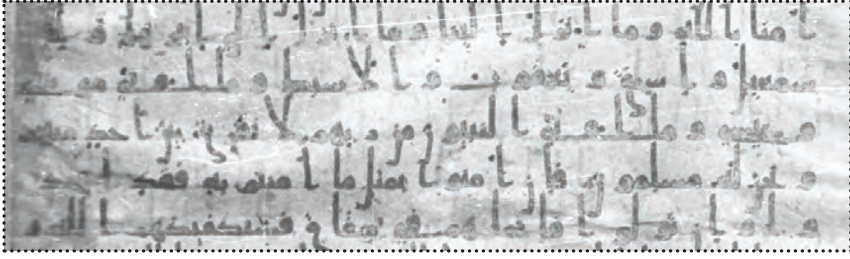 امنا بالله وما انزل الينا وما انزل الى ابرهيم و ا
سمعيل و اسحق و يعقوب و الاسبط و ما اوتي موسى
و عيسى و ما اوتي النبيون من ربهم لا نفرق بين احد منهم
و نحن له مسلمون فان امنوا بمثل ما امنتم به فقد اهتد
وا و ان تولوا فانما هم في شقاق فسيكفيكهم الله